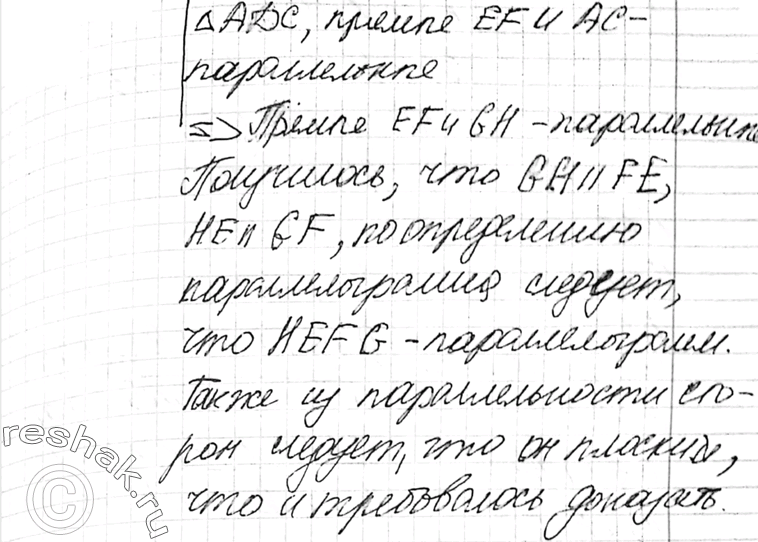 △ADC, прямые EF и AC-
параллельные
=> Прямые EF и GH - параллельные
Получилось, что GH || FE,
HE || GF, по определению
параллелограмма следует,
что HEFG - параллелограмм.
Также из параллельности сто-
рон следует, что он плоский,
что и требовалось доказать.
reshak.ru
©